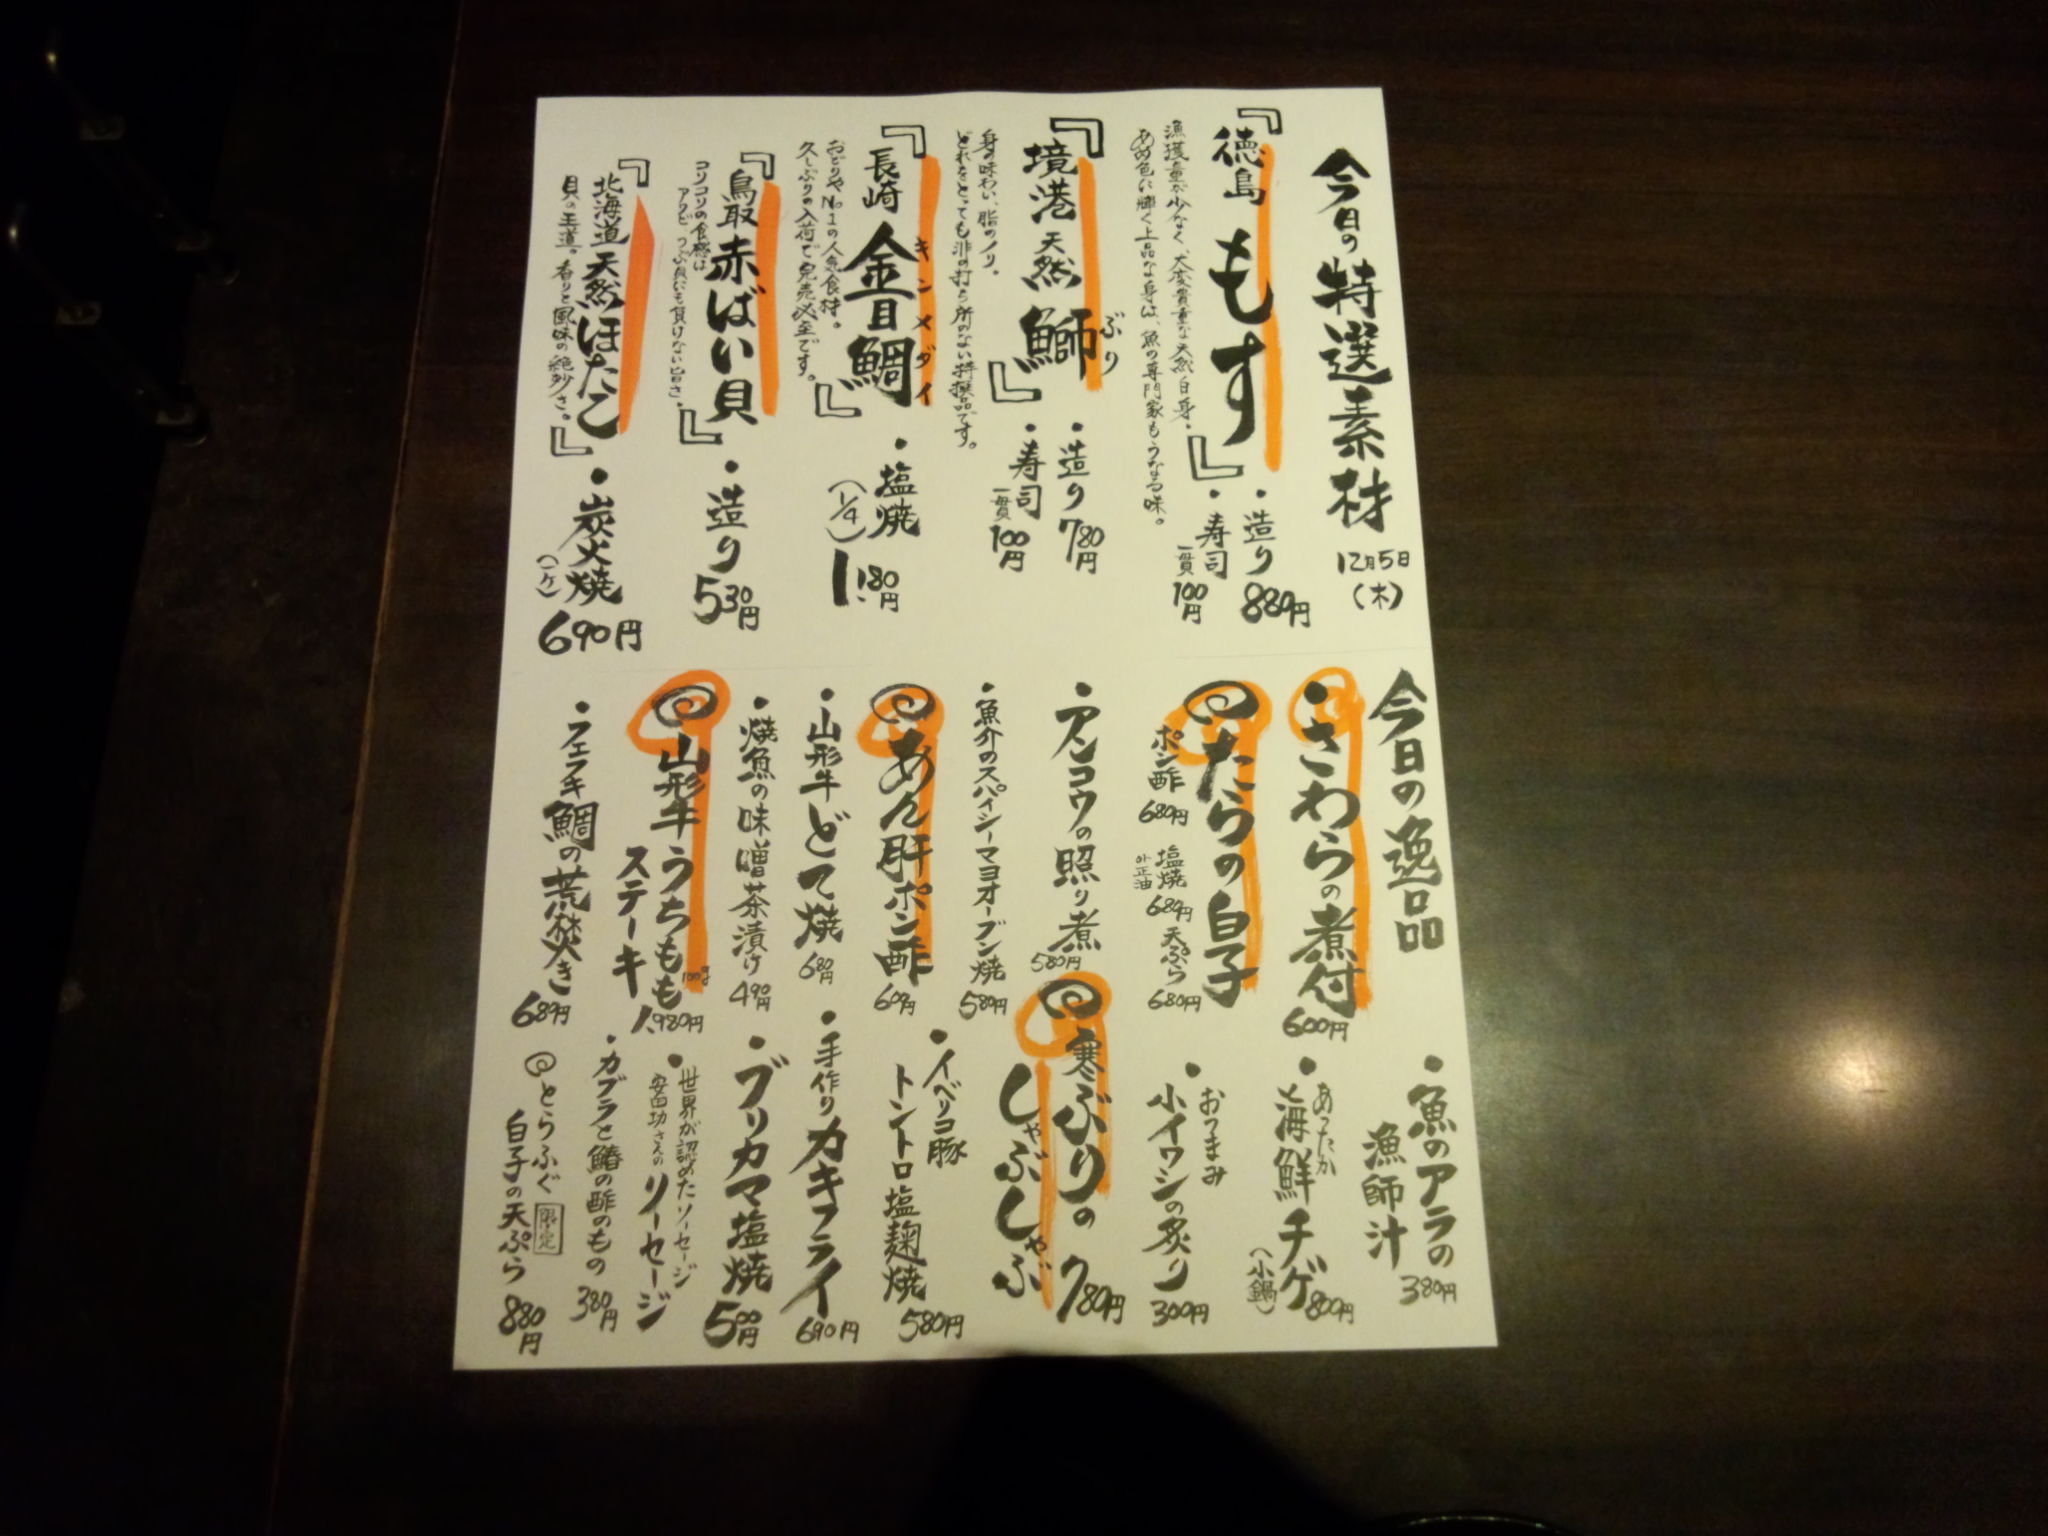 今日の特選素材
12月5日
(木)
『徳島 もす』
漁獲量が少なく、大変貴重な天然白身。
あめ色に輝く上品な身は、魚の専門家もうなる味。
・造り 880円
・寿司 一貫 100円
『境港 天然 鰤』
ぶり
身の味わい、脂のノリ。
どれをとっても非の打ち所のない特撰品です。
・造り 780円
・寿司 一貫 100円
『長崎 金目鯛』
キンメダイ
おどりやNo.1の人気食材。
久しぶりの入荷で完売必至です。
・塩焼 (1/4) 1.180円
『鳥取 赤ばい貝』
コリコリの食感は
アワビ、つぶ貝にも負けない旨さ。
・造り 530円
『北海道 天然 ほたて』
貝の王道。香りと風味の絶妙さ。
・炭火焼 (一ケ) 690円
今日の逸品
・さわらの煮付 600円
たらの白子
ポン酢 680円
塩焼 or 正油 680円
天ぷら 680円
・アンコウの照り煮 580円
・魚介のスパイシーマヨオーブン焼 580円
あん肝ポン酢 600円
・山形牛どて焼 680円
・焼魚の味噌茶漬け 490円
山形牛うちもも 100g
ステーキ 1.980円
・フエフキ鯛の荒焚き 680円
・魚のアラの
漁師汁 380円
・あったか
海鮮チゲ (小鍋) 800円
・おつまみ
小イワシの炙り 300円
寒ぶりの
しゃぶしゃぶ 780円
・イベリコ豚
トントロ塩麹焼 580円
・手作りカキフライ 690円
・ブリカマ塩焼 500円
・世界が認めたソーセージ
安田功さんの ソーセージ
・カブラと鰆の酢のもの 380円
とらふぐ 限定
白子の天ぷら 880円